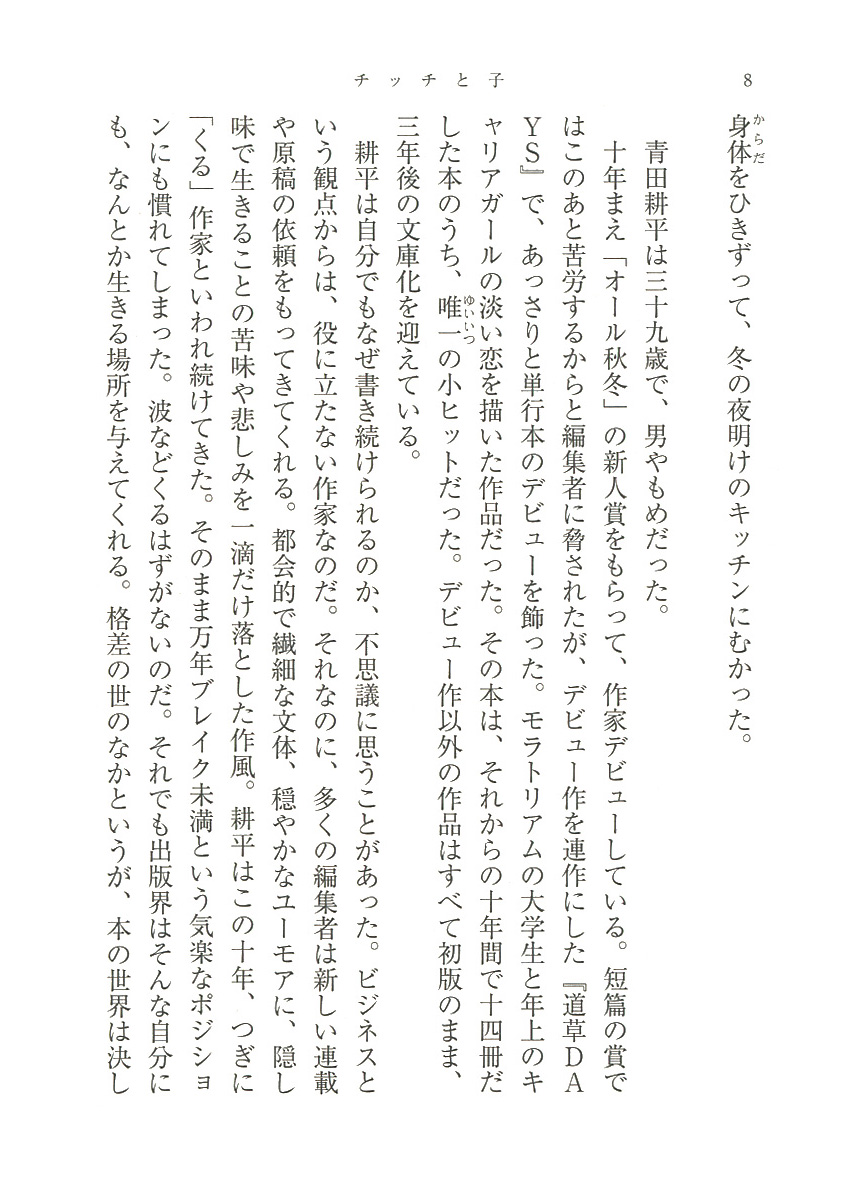 8
チッチと子
身体をひきずって、冬の夜明けのキッチンにむかった。
からだ
青田耕平は三十九歳で、男やもめだった。
十年まえ「オール秋冬」の新人賞をもらって、作家デビューしている。短篇の賞で
はこのあと苦労するからと編集者に脅されたが、デビュー作を連作にした『道草ＤＡ
ＹＳ』で、あっさりと単行本のデビューを飾った。モラトリアムの大学生と年上のキ
ャリアガールの淡い恋を描いた作品だった。その本は、それからの十年間で十四冊だ
した本のうち、唯一の小ヒットだった。デビュー作以外の作品はすべて初版のまま、
ゆいいつ
三年後の文庫化を迎えている。
耕平は自分でもなぜ書き続けられるのか、不思議に思うことがあった。ビジネスと
いう観点からは、役に立たない作家なのだ。それなのに、多くの編集者は新しい連載
や原稿の依頼をもってきてくれる。都会的で繊細な文体、穏やかなユーモアに、隠し
味で生きることの苦味や悲しみを一滴だけ落とした作風。耕平はこの十年、つぎに
「くる」作家といわれ続けてきた。そのまま万年ブレイク未満という気楽なポジショ
ンにも慣れてしまった。波などくるはずがないのだ。それでも出版界はそんな自分に
も、なんとか生きる場所を与えてくれる。格差の世のなかというが、本の世界は決し